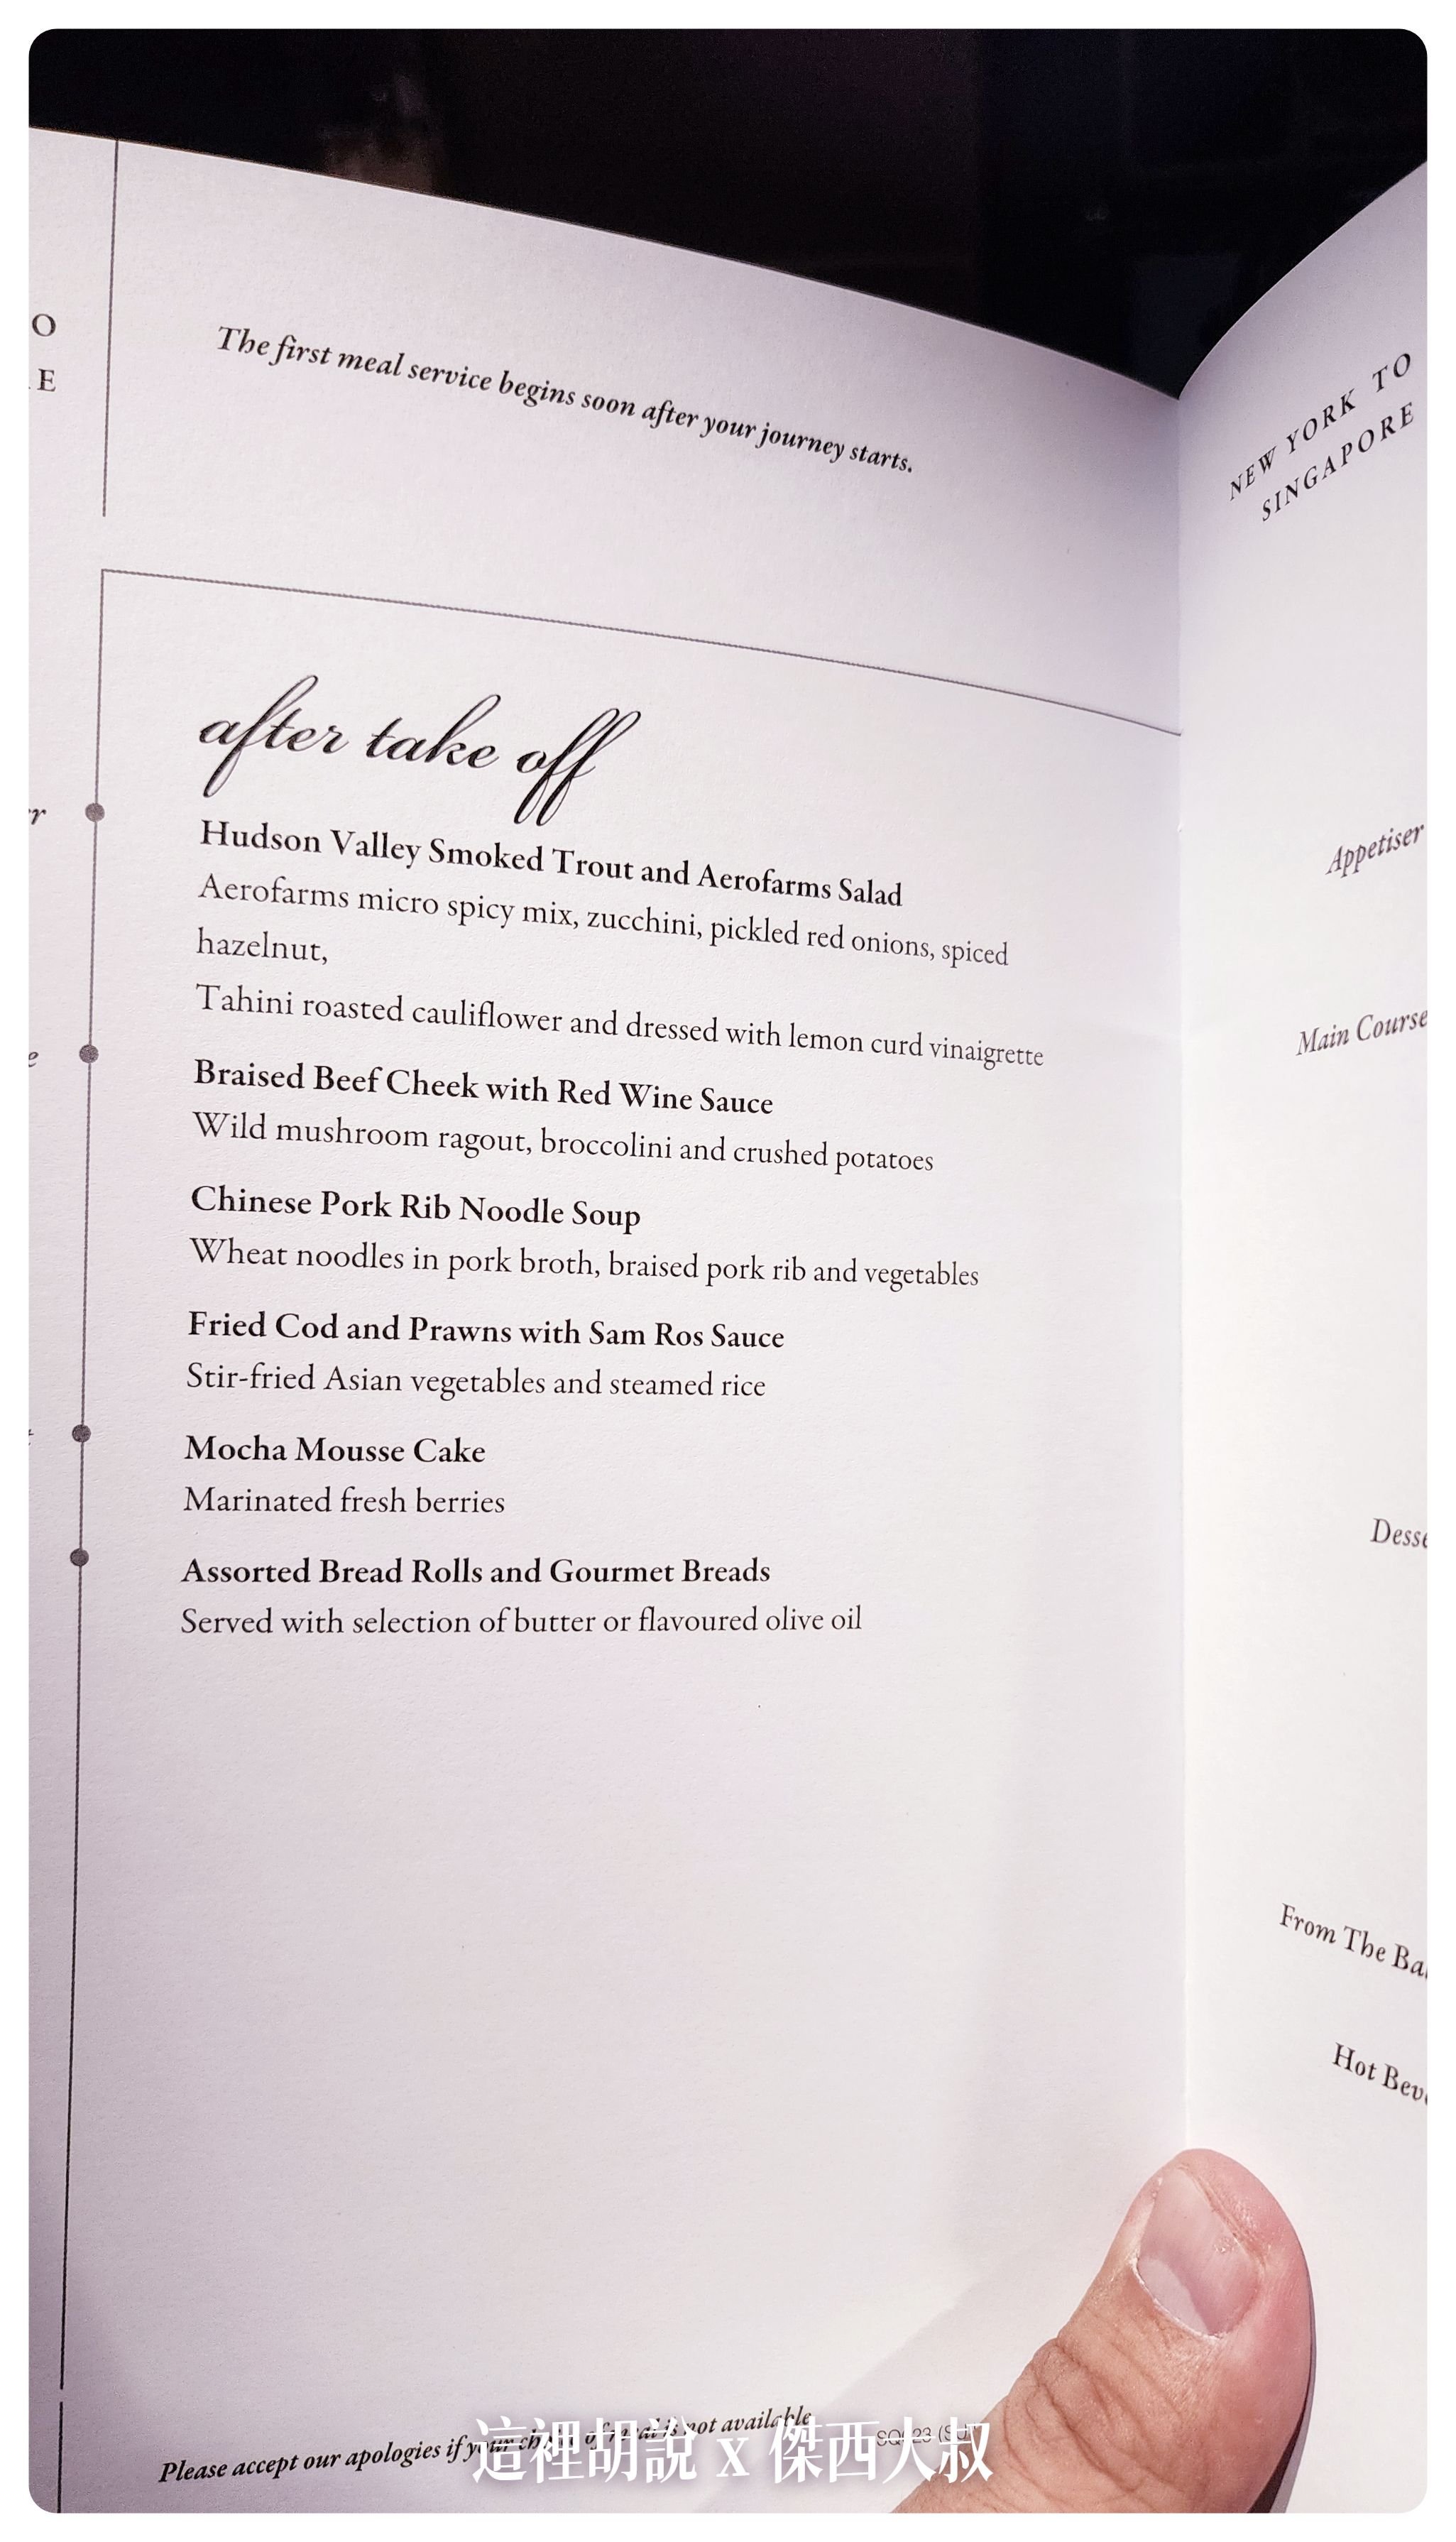 The first meal service begins soon after your journey starts.
after take off
Hudson Valley Smoked Trout and Aerofarms Salad
Aerofarms micro spicy mix, zucchini, pickled red onions, spiced
hazelnut,
Tahini roasted cauliflower and dressed with lemon curd vinaigrette
Braised Beef Cheek with Red Wine Sauce
Wild mushroom ragout, broccolini and crushed potatoes
Chinese Pork Rib Noodle Soup
Wheat noodles in pork broth, braised pork rib and vegetables
Fried Cod and Prawns with Sam Ros Sauce
Stir-fried Asian vegetables and steamed rice
Mocha Mousse Cake
Marinated fresh berries
Assorted Bread Rolls and Gourmet Breads
Served with selection of butter or flavoured olive oil
Please accept our apologies if your choice of meal is not available
NEW YORK TO
SINGAPORE
Appetiser
Main Course
From The
Hot
這裡胡說 x 傑西大叔